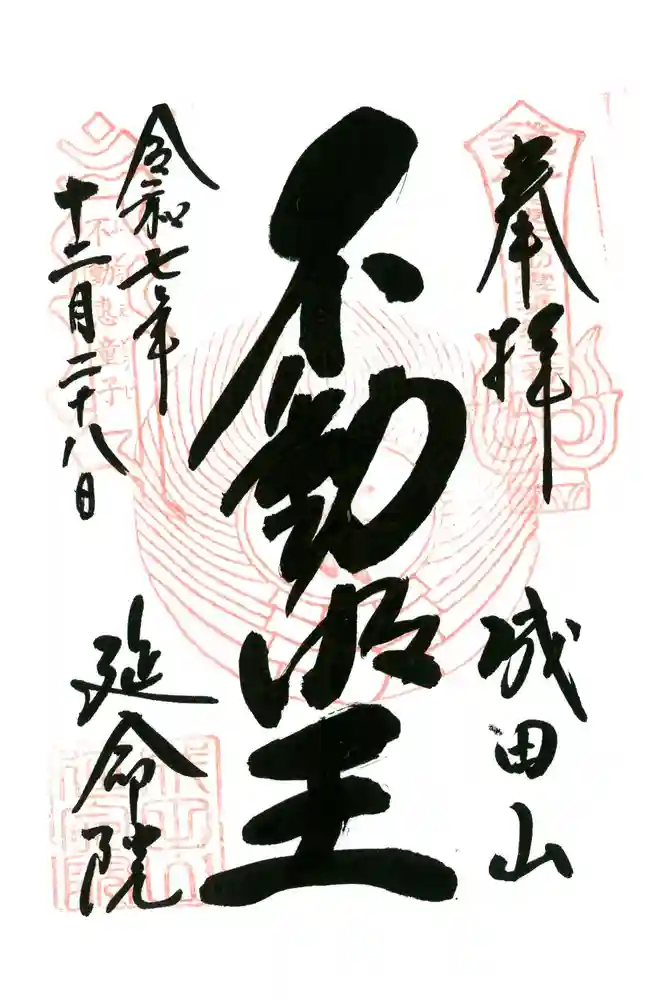 奉拝
成田山
不動明王
令和七年
十二月二十八日
延命院
不動恵童子